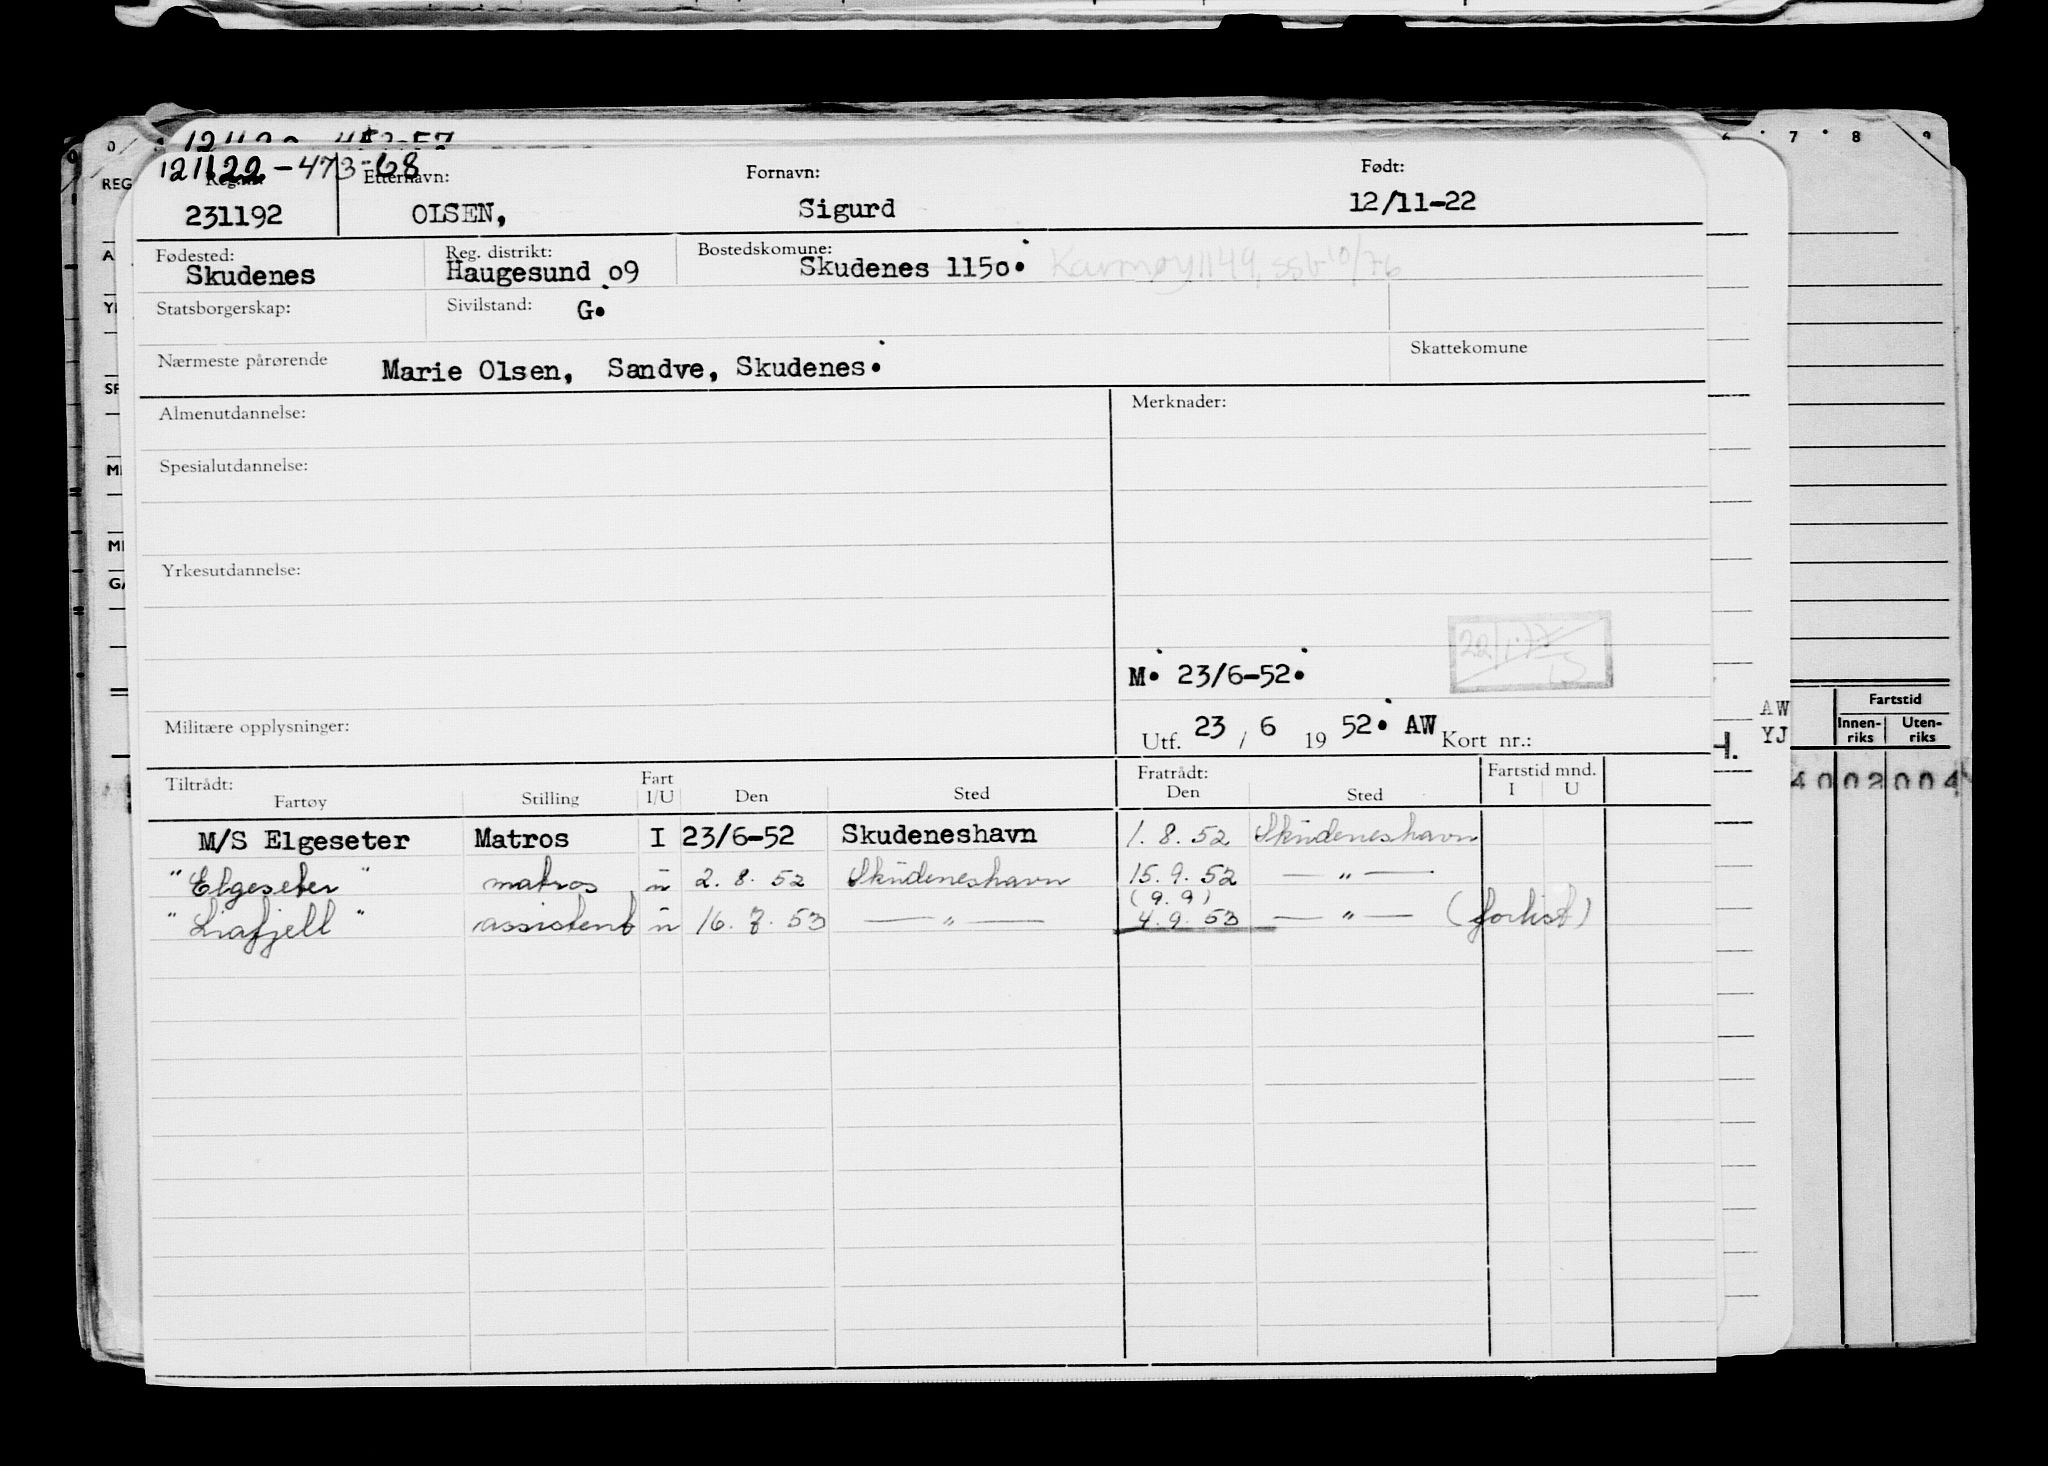 121122-473-68
Reg.nr. Etternavn: Fornavn: Født:
231192 OLSEN, Sigurd 12/11-22
Fødested: Reg. distrikt: Bostedskomune:
Skudenes Haugesund o9 Skudenes 115o. Karmøy 1149, SSb 10/76
Statsborgerskap: Sivilstand: G.
Nærmeste pårørende Marie Olsen, Sandve, Skudenes. Skattekomune
Almenutdannelse: Merknader:
Spesialutdannelse:
Yrkesutdannelse:
M. 23/6-52.
Militære opplysninger: Utf. 23 / 6 19 52. AW Kort nr.:
Tiltrådt: Fart Fratrådt: Fartstid mnd.
Fartøy Stilling I/U Den Sted Den Sted I U
M/S Elgeseter Matros I 23/6-52 Skudeneshavn 1.8.52 Skudeneshavn
" Elgeseter " matros u 2.8.52 Skudeneshavn 15.9.52 — " —
(9.9)
" Liafjell " assistent u 16.7.53 — " — 4.9.53 — " — (forlist)
7 8 9
AW
YJ
Fartstid
Innen-riks Uten-riks
4002004